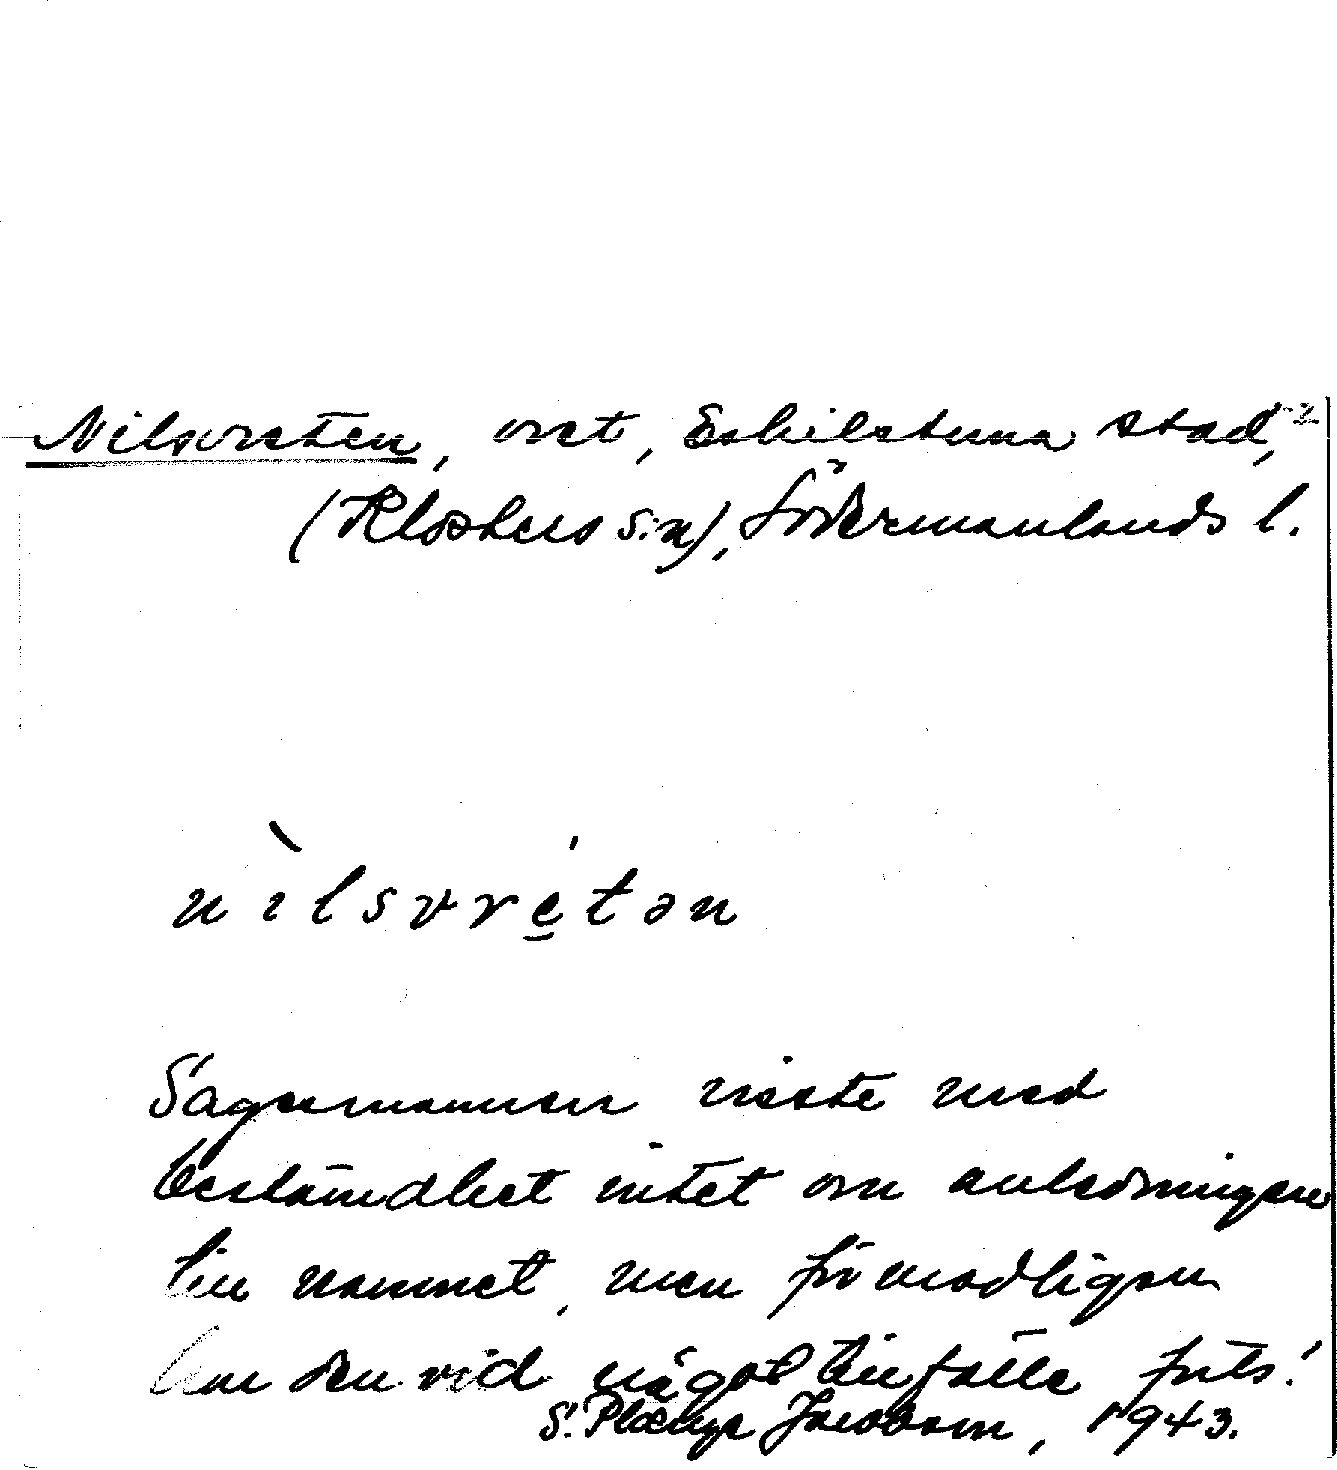 Nilsvreten, vret, Eskilstuna stad,
(Klosters s:n), Södermanlands l.
nìlsvre̱ ́tən
Sagesmannen visste med
bestämdhet intet om anledningen
till namnet, men förmodligen
har den vid något tillfälle
S. Jacobson, 1943.